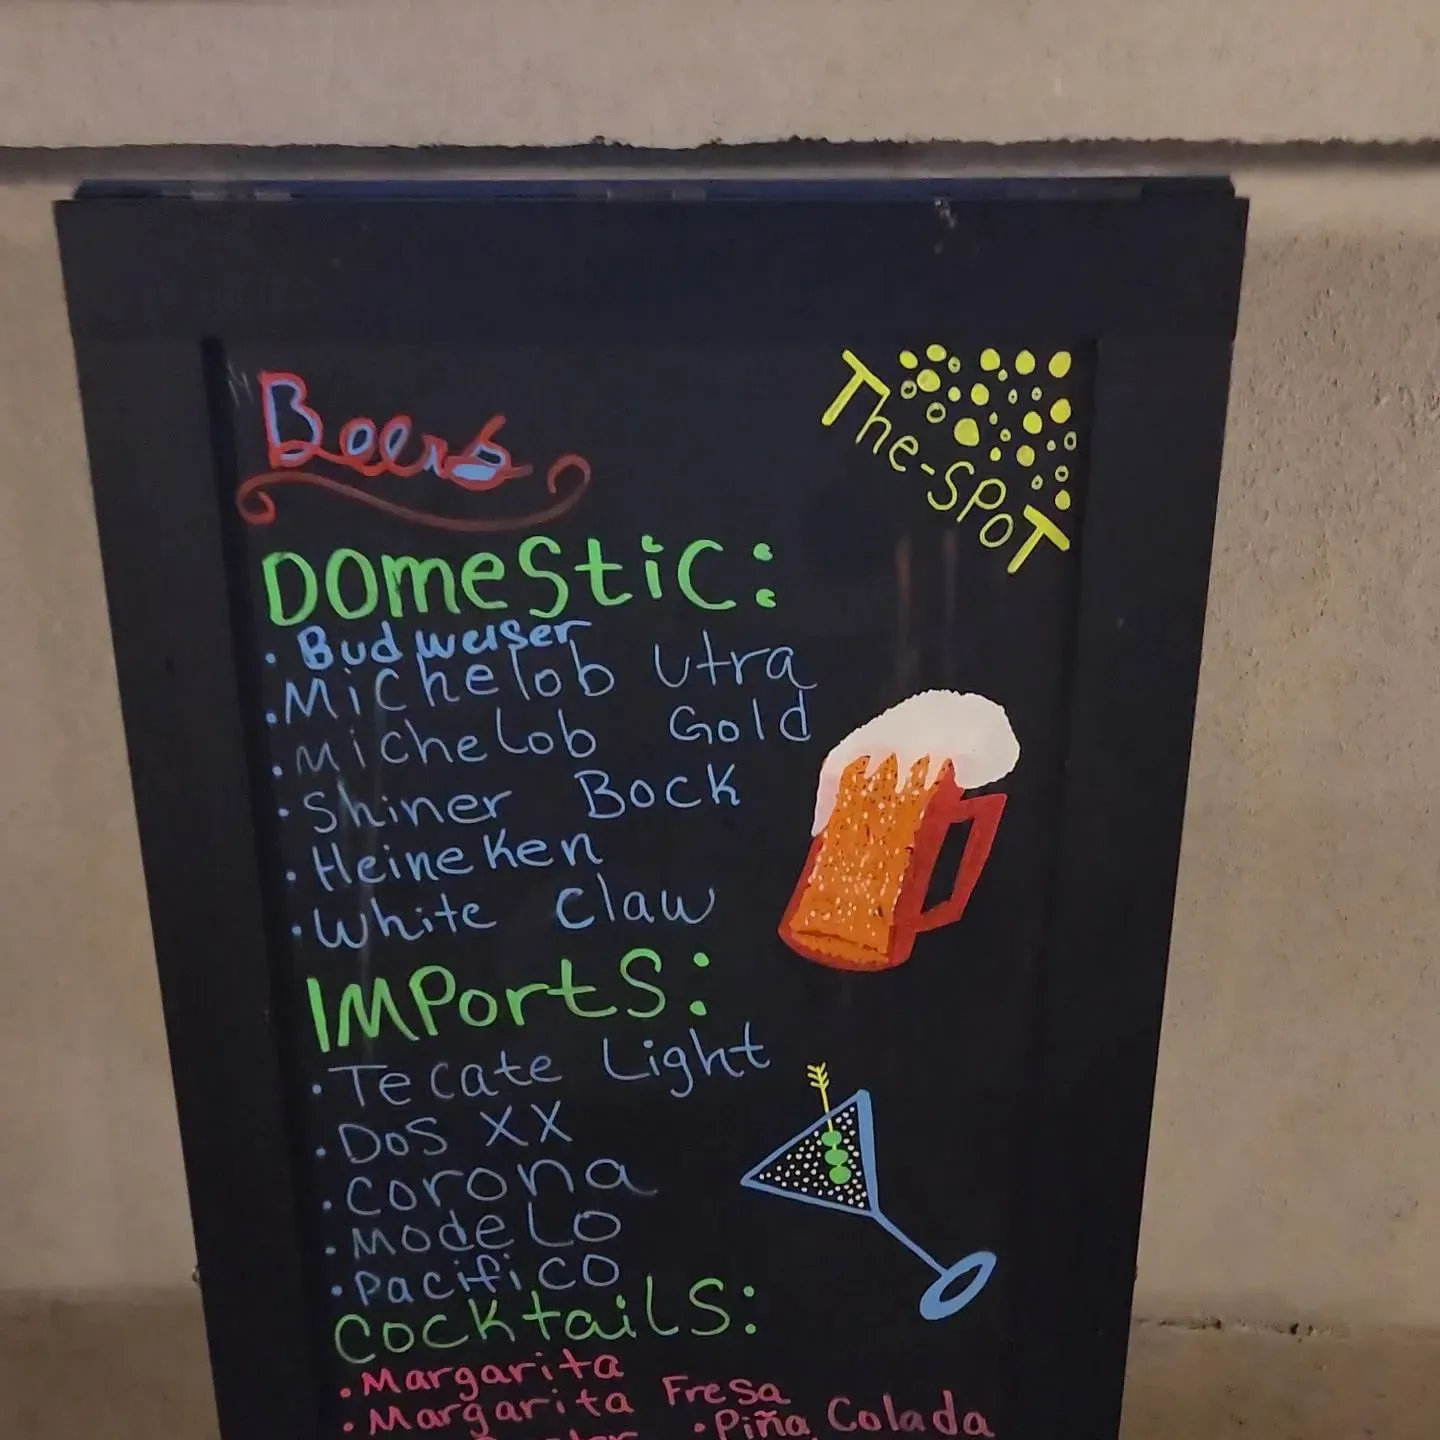 Beers
The-SPoT
Domestic:
· Budweiser
· Michelob Utra
· Michelob Gold
· Shiner Bock
· Heineken
· White Claw
IMPortS:
· Tecate Light
· Dos XX
· Corona
· Modelo
· Pacifico
CocktailS:
· Margarita
· Margarita Fresa
· Piña Colada